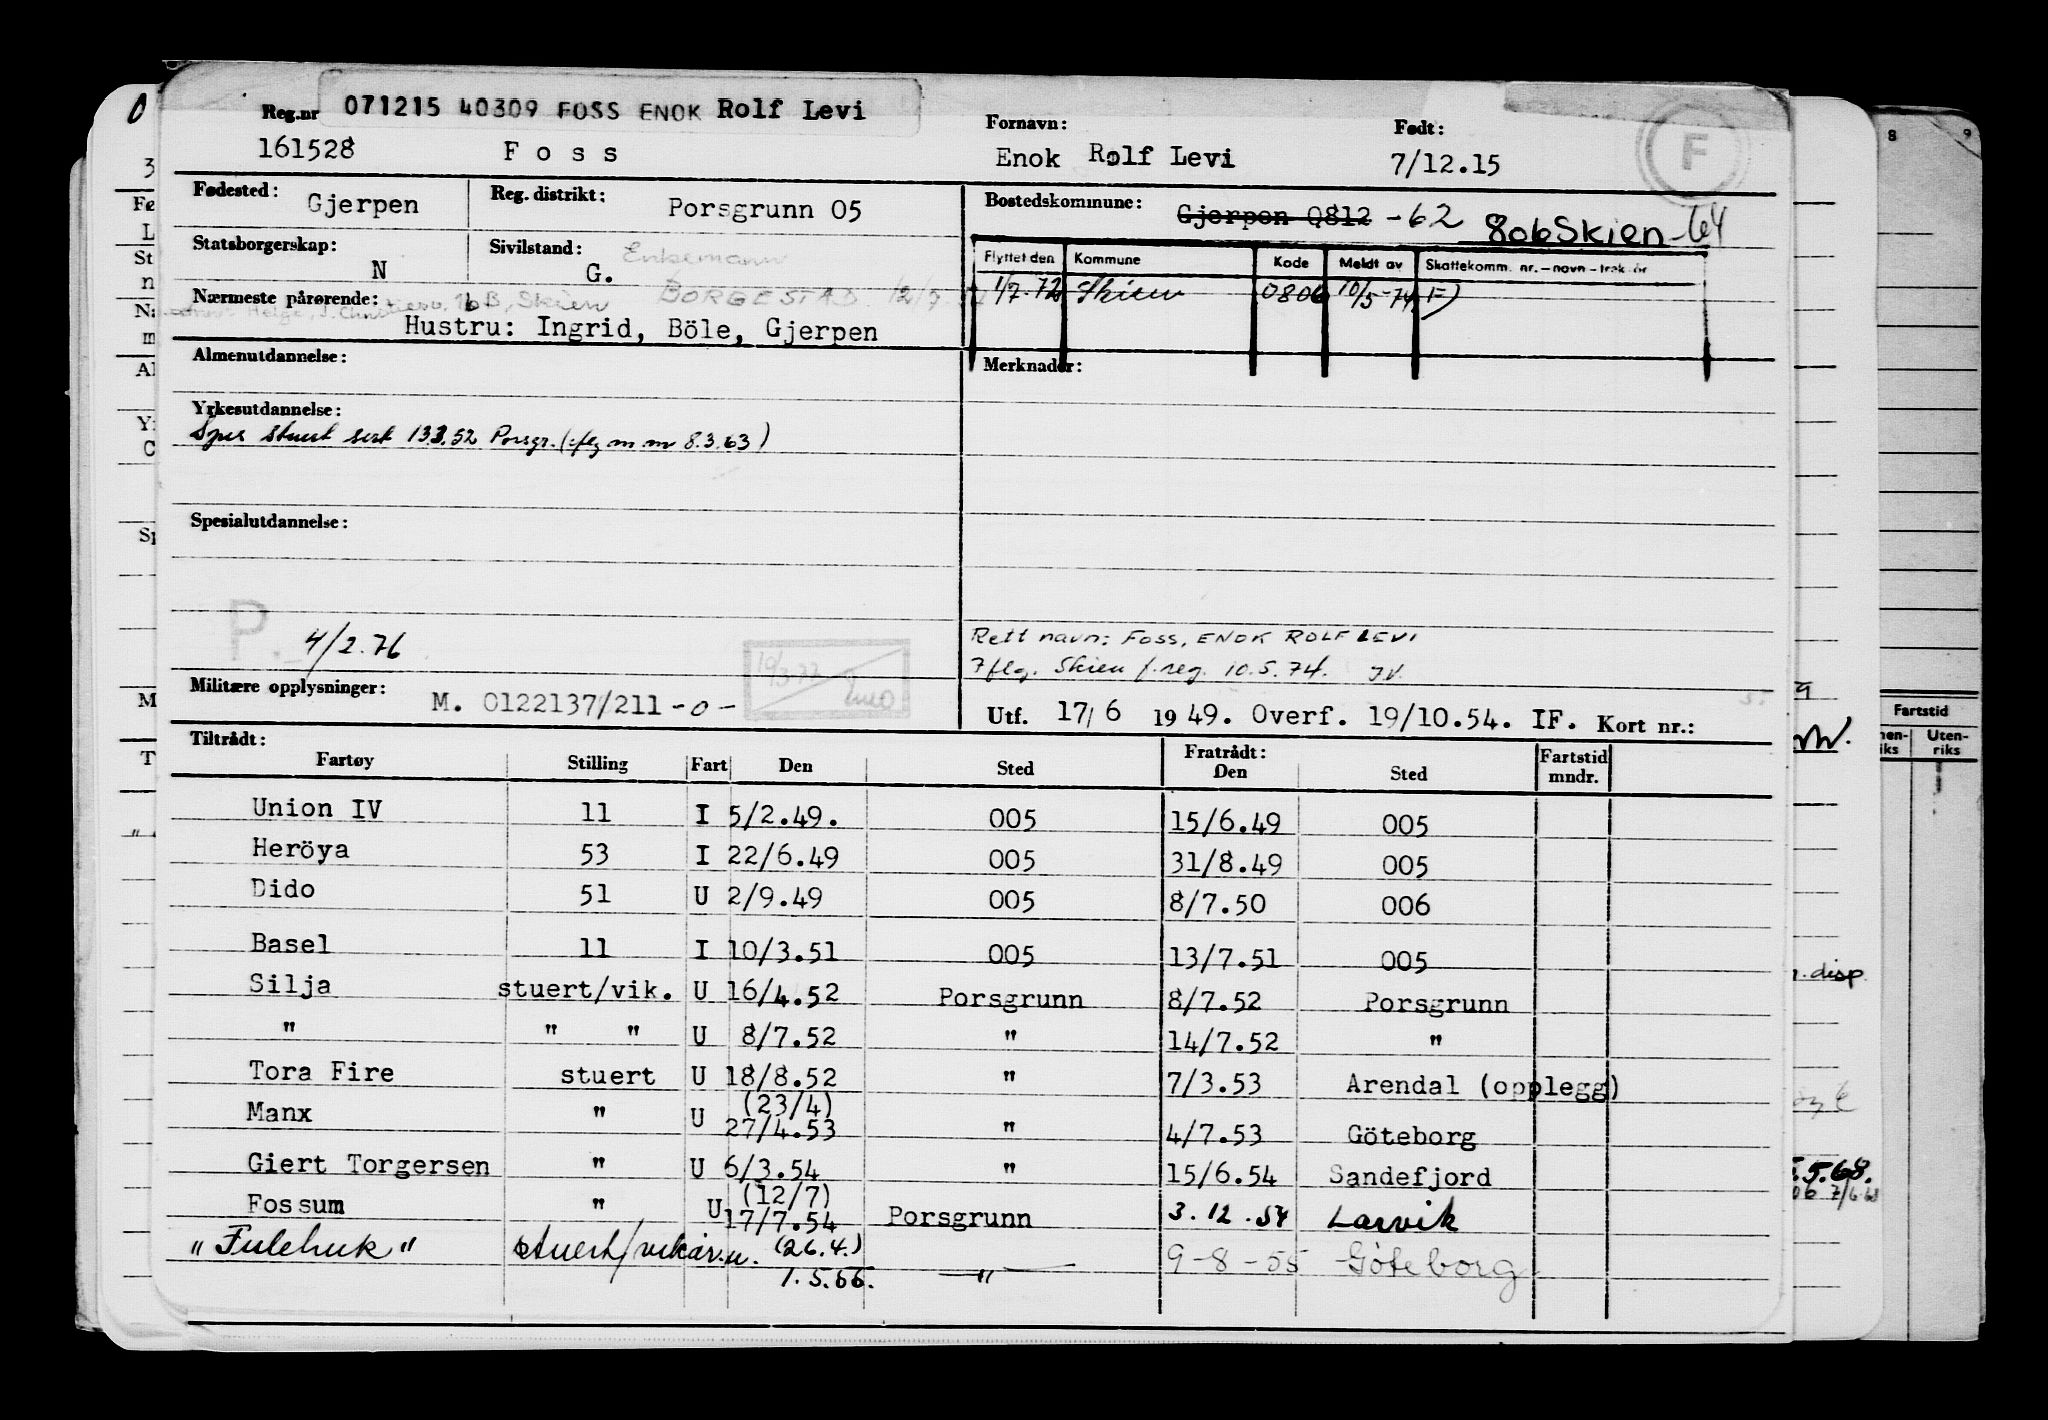 071215 40309 FOSS ENOK Rolf Levi
Reg.nr 161528 F o s s
Fornavn: Enok Rolf Levi
Født: 7/12.15
F
Fødested: Gjerpen
Reg. distrikt: Porsgrunn 05
Bostedskommune: Gjerpen 0812 -62 806 Skien -64
Statsborgerskap: N
Sivilstand: G. Enkemann
Flyttet den Kommune Kode Meldt av Skattekomm. nr.-navn-trek-år
1/7.72 Skien 0806 10/5-74 F)
Nærmeste pårørende: BORGESTAD
16B, Skien
Hustru: Ingrid, Böle, Gjerpen
Almenutdannelse:
Merknader:
Yrkesutdannelse:
stuert sert 13.3.52 Porsgr. 8.3.63)
Spesialutdannelse:
P. 4/2.76
Rett navn: FOSS, ENOK ROLF LEVI
Skien f.reg. 10.5.74.
Militære opplysninger: M. 0122137/211 -0-
Utf. 17/6 1949. Overf. 19/10.54. IF. Kort nr.:
Tiltrådt: Fratrådt:
Fartøy Stilling Fart Den Sted Den Sted Fartstid mndr.
Union IV 11 I 5/2.49. 005 15/6.49 005
Heröya 53 I 22/6.49 005 31/8.49 005
Dido 51 U 2/9.49 005 8/7.50 006
Basel 11 I 10/3.51 005 13/7.51 005
Silja stuert/vik. U 16/4.52 Porsgrunn 8/7.52 Porsgrunn
" " " U 8/7.52 " 14/7.52 "
Tora Fire stuert U 18/8.52 " 7/3.53 Arendal (opplegg)
Manx " U (23/4) 27/4.53 " 4/7.53 Göteborg
Giert Torgersen " U 6/3.54 " 15/6.54 Sandefjord
Fossum " U (12/7) 17/7.54 Porsgrunn 3.12.54 Larvik
"Fulehuk" stuert/vikar. u. (26.4.) 1.5.55. " 9-8-55 Göteborg
8 9
Fartstid
Uten-
riks
disp.
5.68.